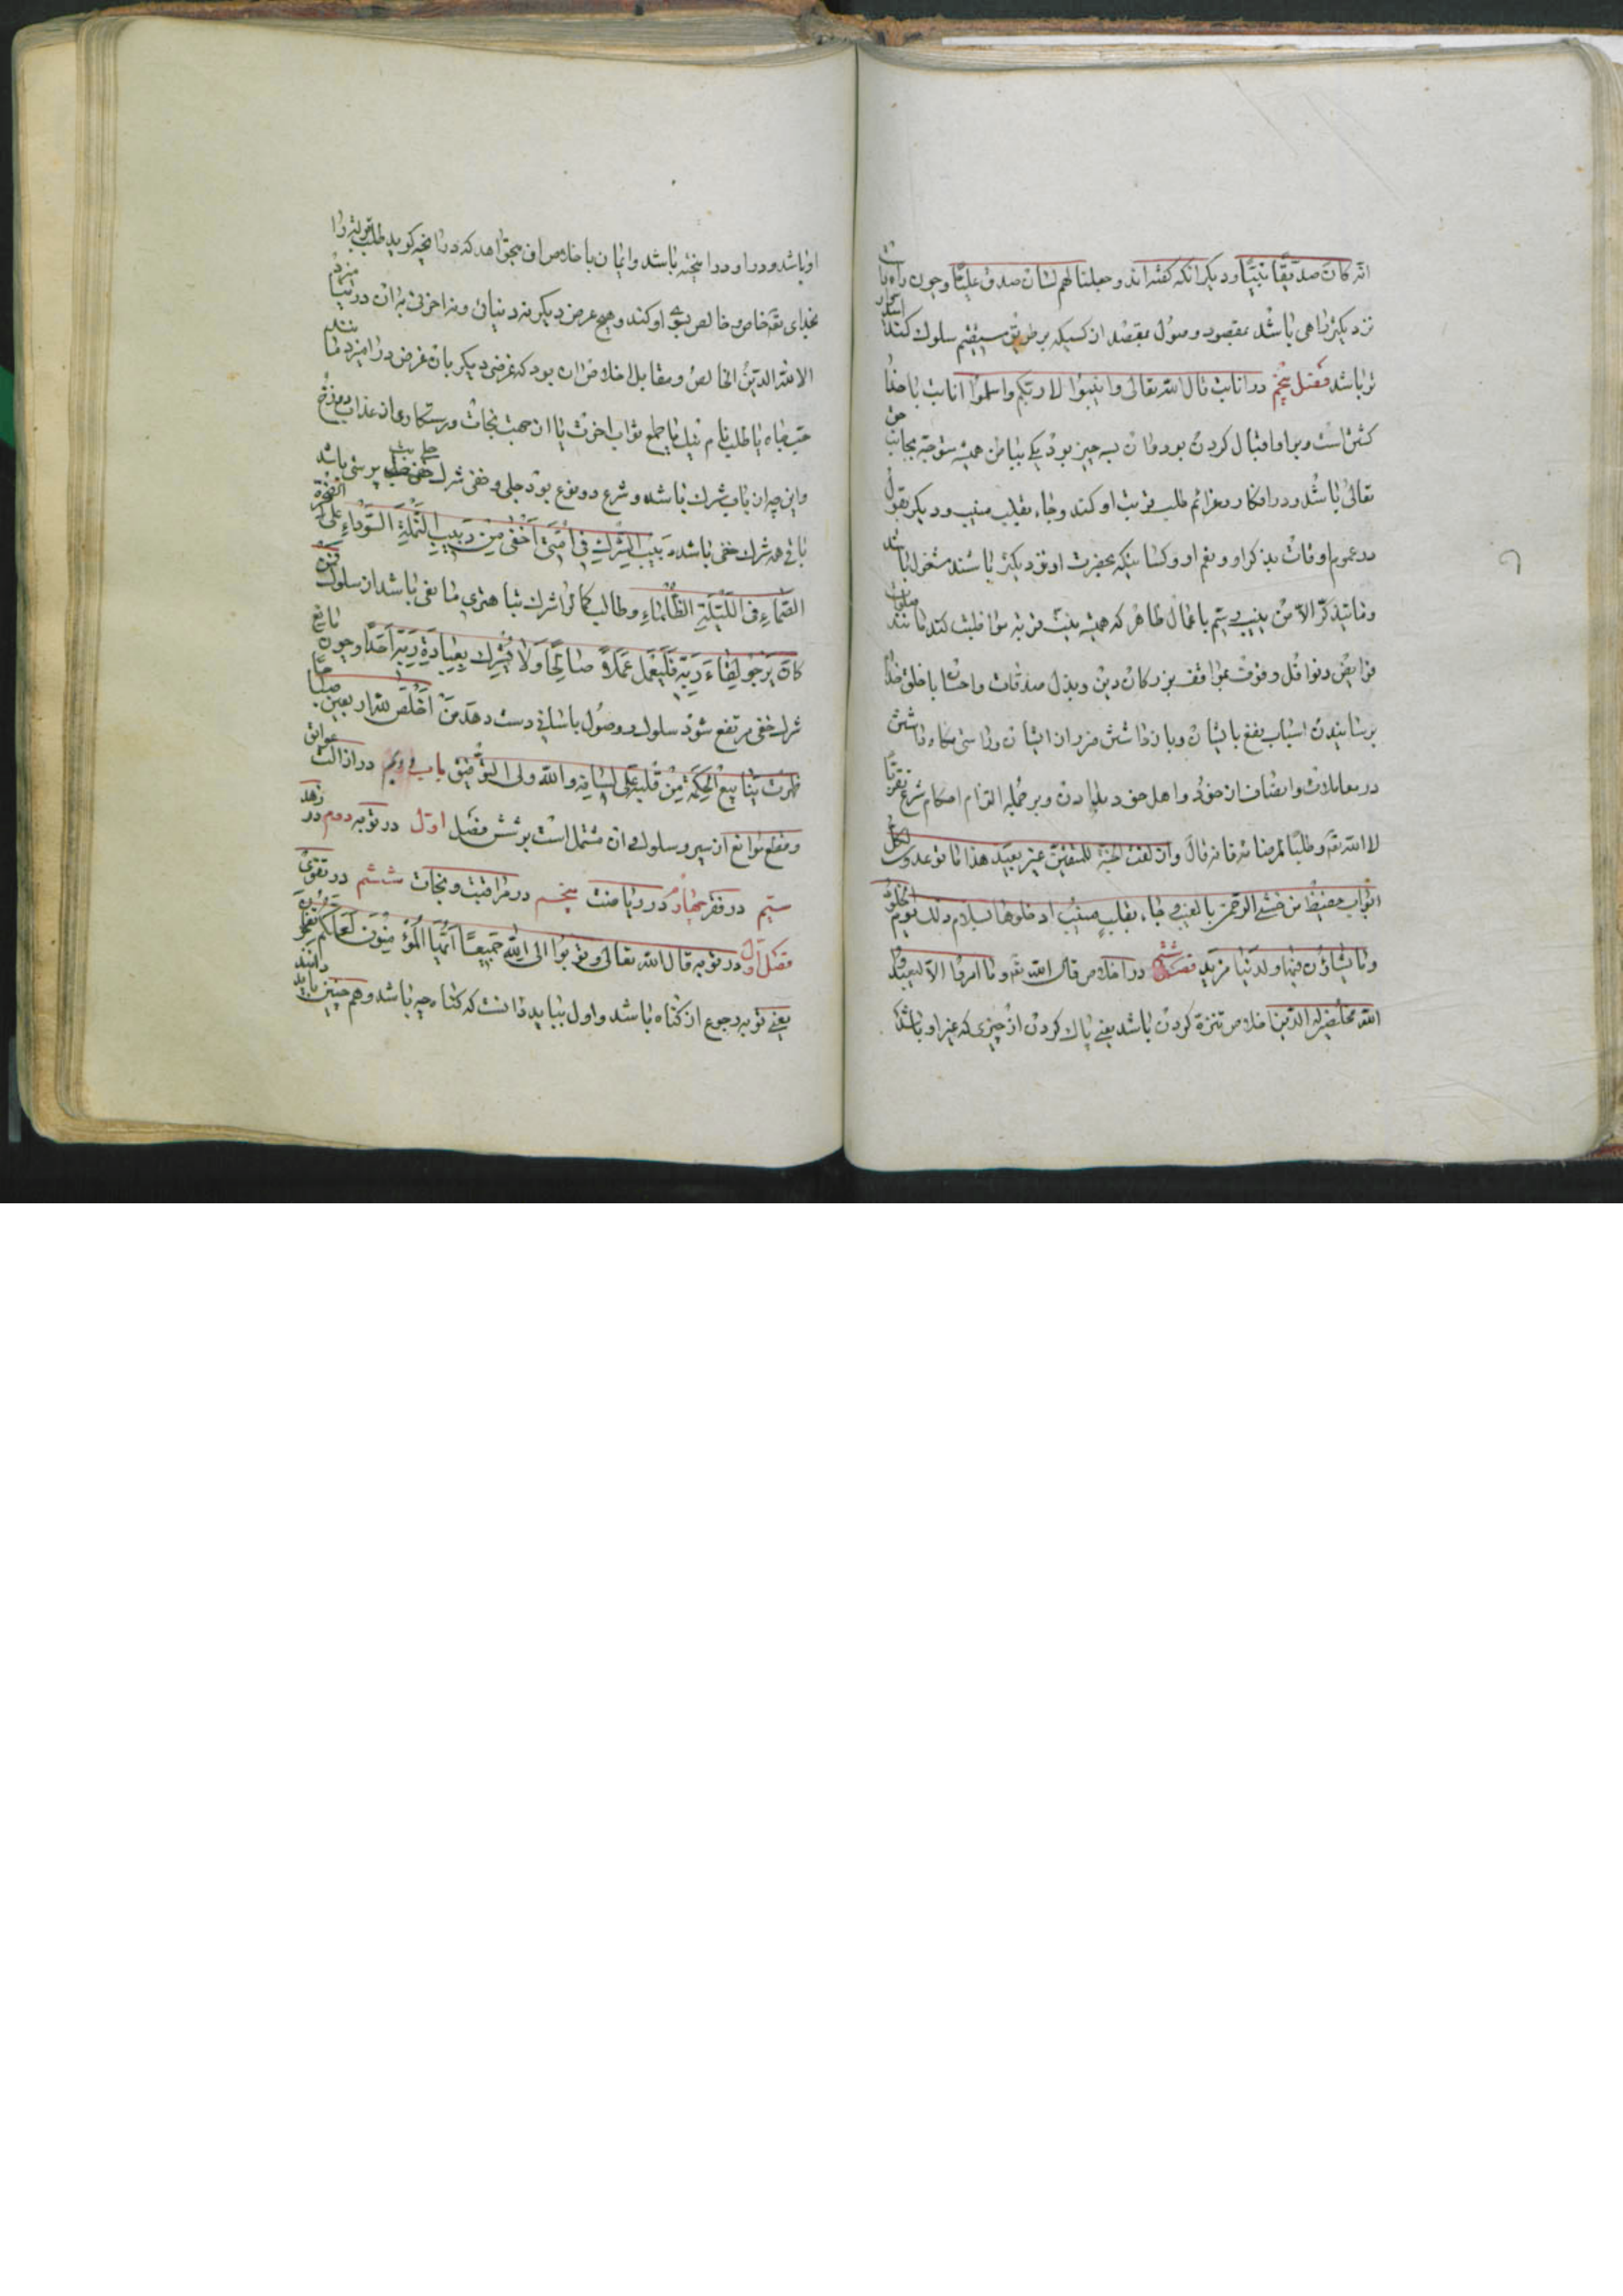 انه کان صدیقا نبیا و دیکر انکه کفته اند و جعلنا لهم لسان صدق علیا و چون راه راست
نزدیکتر راهی باشد بمقصود و وصول بمقصد از کسیکه بر طریق مستقیم سلوک کند امیدوار
تر باشد فصل پنجم در انابت قال الله تعالی و انیبوا الی ربکم و اسلموا انابت با خدا
کشتن است و بر او اقبال کردن بود و ان بسه چیز بود یکی بباطن همیشه متوجه بجانب حق
تعالی باشد و در افکار و عزائم طلب قربت او کند و جاء بقلب منیب و دیکر بقول
در عموم اوقات بذکر او و نعم او و کسانیکه بحضرت او نزدیکتر باشند مشغول باشد
و ما یتذکر الا من ینیب سیم باعمال ظاهر که همیشه بنیت قربة مواظبت کند مانند صلوات
فرایض و نوافل و وقوف بمواقف بزرکان دین و بذل صدقات و احسان با خلق خدا
برسانیدن اسباب نفع بایشان و باز داشتن ضرر از ایشان و راستی نکاه داشتن
در معاملات و انصاف از خود و اهل خود بدادن و بر جمله التزام احکام شرع تقربا
لا الله تعه و طلبا لمرضاته فانه قال و ازلفت الجنة للمتقین غیر بعید هذا ما توعدون لکل
اواب حفیظ من خشی الرحمن بالغیب و جاء بقلب منیب ادخلوها بسلام ذلک یوم الخلود
و ما یشاؤن فیها و لدینا مزید فصل ششم در اخلاص قال الله تعه و ما امروا الا لیعبدوا
الله مخلصین له الدین اخلاص تنزه کردن باشد یعنی پاک کردن از چیزی که غیر او باشد که
او باشد و در او در امیخته باشد و ایمان باخلاص ان میخواهد که در انچه کوید طلب قربت را
بخدای تعه خاص و خالص بسوی او کند و هیچ غرض دیکر نه دنیائی و نه اخرتی به ان در نیامیزد
الا لله الدین الخالص و مقابل اخلاص ان بود که غرضی دیکر بان غرض در امیزد مانند
حب جاه یا طلب نام نیک یا طمع ثواب اخرت یا از جهت نجات و رستکاری از عذاب دوزخ
و این چه از باب شرک باشد و شرک دو نوع بود جلی و خفی شرک جلی بت پرستی باشد
باقی همه شرک خفی باشد دبیب الشرک فی امتی اخفی من دبیب النملة السوداء علی الصخرة
الصماء فی اللیلة الظلماء و طالب کمال را شرک تباهترین مانعی باشد از سلوک فمن
کان یرجو لقاء ربه فلیعمل عملا صالحا و لا یشرک بعبادة ربه احدا و چون مانع
شرک خفی مرتفع شود سلوک و وصول باسانی دست دهد من اخلص لله اربعین صباحا
ظهرت ینابیع الحکمة من قلبه علی لسانه و الله ولی التوفیق باب دویم در ازالت عوایق
و قطع موانع از سیر و سلوک و ان مشتمل است بر شش فصل اول در توبه دوم در زهد
سیم در فقر چهارم در ریاضت پنجم در مراقبت و نجات ششم در تقوی
فصل اول در توبه قال الله تعالی و توبوا الی الله جمیعا ایها المؤمنون لعلکم تفلحون
یعنی توبه رجوع از کناه باشد و اول بباید دانست که کناه چه باشد و هم چنین باید دانند